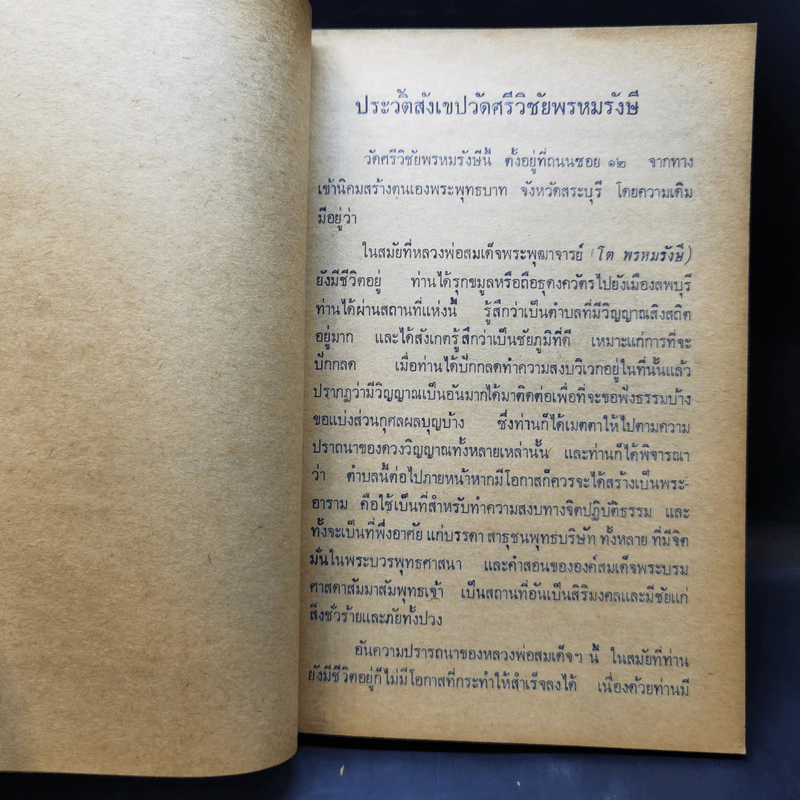 ประวัติสังเขปวัดศรีวิชัยพรหมรังษี
วัดศรีวิชัยพรหมรังษีนี้ ตั้งอยู่ที่ถนนซอย ๑๒ จากทาง
เข้านิคมสร้างตนเองพระพุทธบาท จังหวัดสระบุรี โดยความเดิม
มีอยู่ว่า
ในสมัยที่หลวงพ่อสมเด็จพระพุฒาจารย์ (โต พรหมรังษี)
ยังมีชีวิตอยู่ ท่านได้รุกขมูลหรือถือธุดงควัตรไปยังเมืองลพบุรี
ท่านได้ผ่านสถานที่แห่งนี้ รู้สึกว่าเป็นตำบลที่มีวิญญาณสิงสถิต
อยู่มาก และได้สังเกตรู้สึกว่าเป็นชัยภูมิที่ดี เหมาะแก่การที่จะ
ปักกลด เมื่อท่านได้ปักกลดทำความสงบวิเวกอยู่ในที่นั้นแล้ว
ปรากฏว่ามีวิญญาณเป็นอันมากได้มาติดต่อเพื่อที่จะขอฟังธรรมบ้าง
ขอแบ่งส่วนกุศลผลบุญบ้าง ซึ่งท่านก็ได้เมตตาให้ไปตามความ
ปราถนาของดวงวิญญาณทั้งหลายเหล่านั้น และท่านก็ได้พิจารณา
ว่า ตำบลนี้ต่อไปภายหน้าหากมีโอกาสก็ควรจะได้สร้างเป็นพระ-
อาราม คือใช้เป็นที่สำหรับทำความสงบทางจิตปฏิบัติธรรม และ
ทั้งจะเป็นที่พึ่งอาศัย แก่บรรดา สาธุชนพุทธบริษัท ทั้งหลาย ที่มีจิต
มั่นในพระบวรพุทธศาสนา และคำสอนขององค์สมเด็จพระบรม
ศาสดาสัมมาสัมพุทธเจ้า เป็นสถานที่อันเป็นสิริมงคลและมีชัยแก่
สิ่งชั่วร้ายและภัยทั้งปวง
อันความปรารถนาของหลวงพ่อสมเด็จฯ นี้ ในสมัยที่ท่าน
ยังมีชีวิตอยู่ก็ไม่มีโอกาสที่กระทำให้สำเร็จลงได้ เนื่องด้วยท่านมี